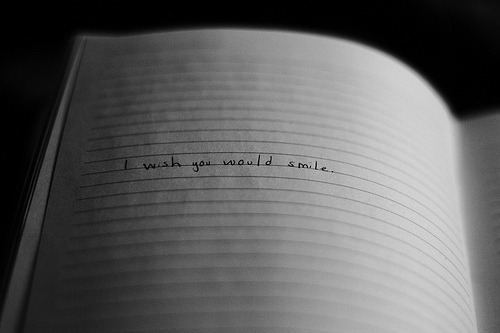 I wish you would smile.